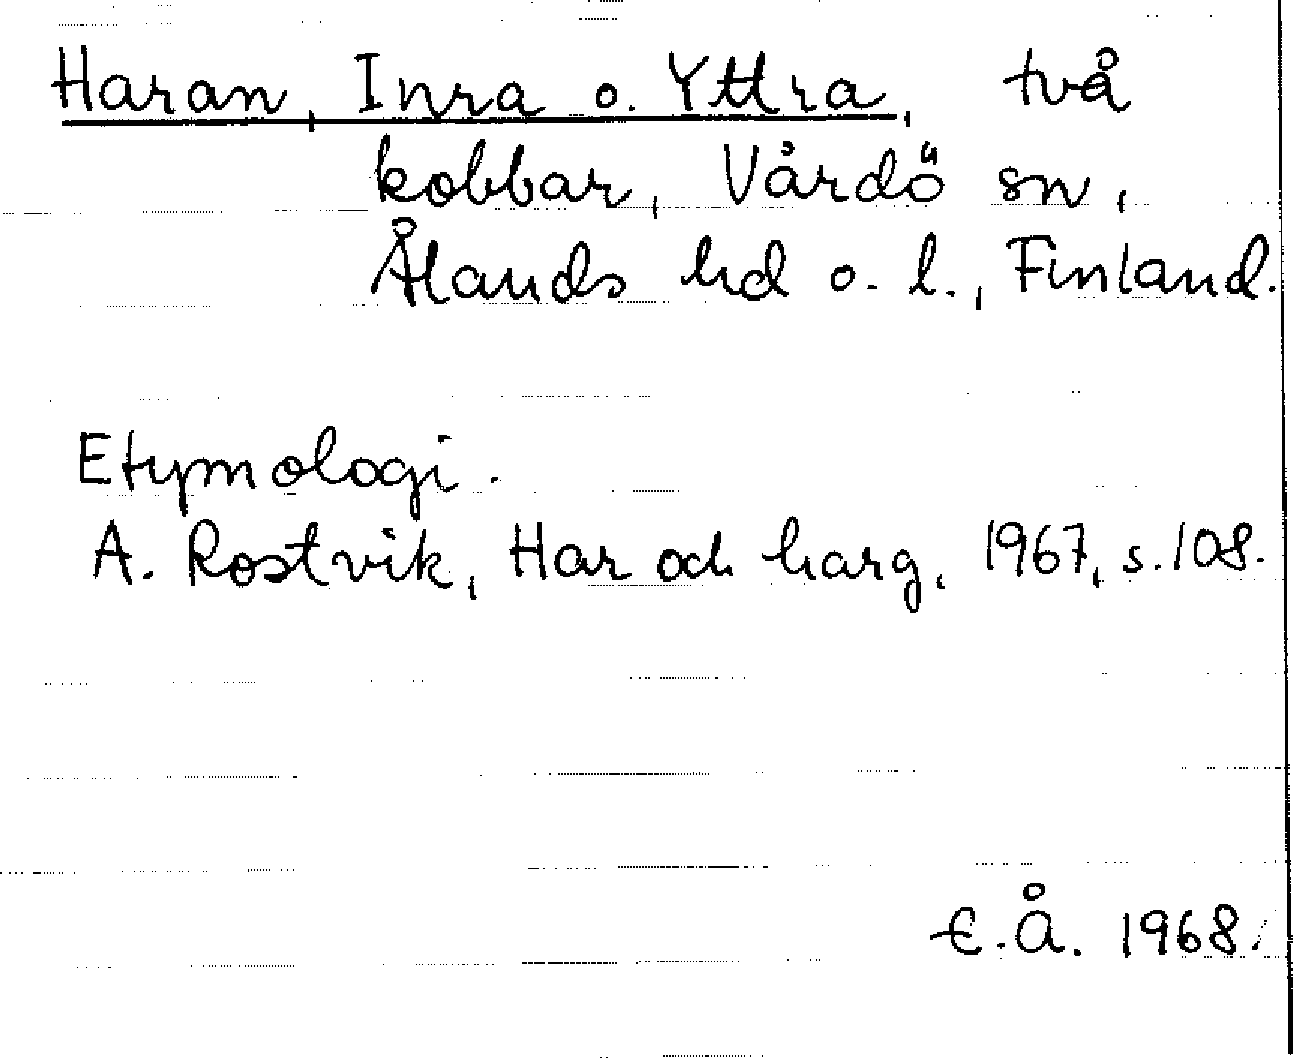 Haran, Inra o. Yttra, två
kobbar, Vårdö sn,
Ålands hd o. l., Finland.
Etymologi.
A. Rostvik, Har och harg, 1967, s. 108.
E.Å. 1968.